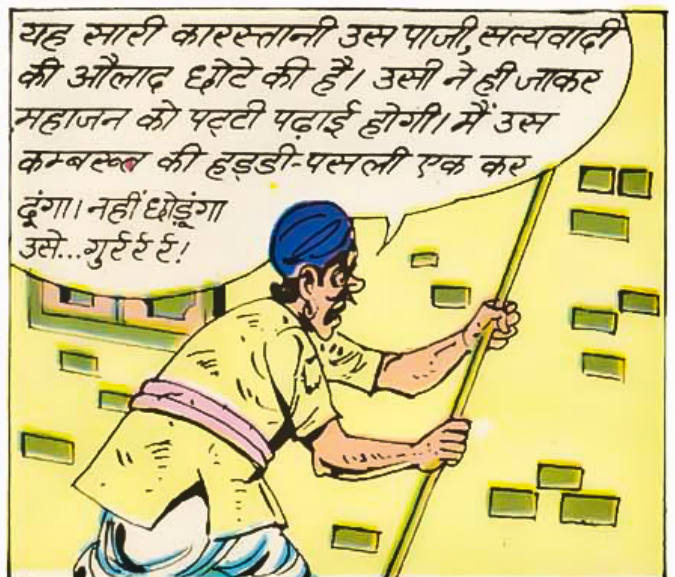 यह सारी कारस्तानी उस पाजी, सत्यवादी
की औलाद छोटे की है। उसी ने ही जाकर
महाजन को पट्टी पढ़ाई होगी। मैं उस
कम्बख्त की हड्डी-पसली एक कर
दूंगा। नहीं छोड़ूंगा
उसे...गुर्र र्र र्र!